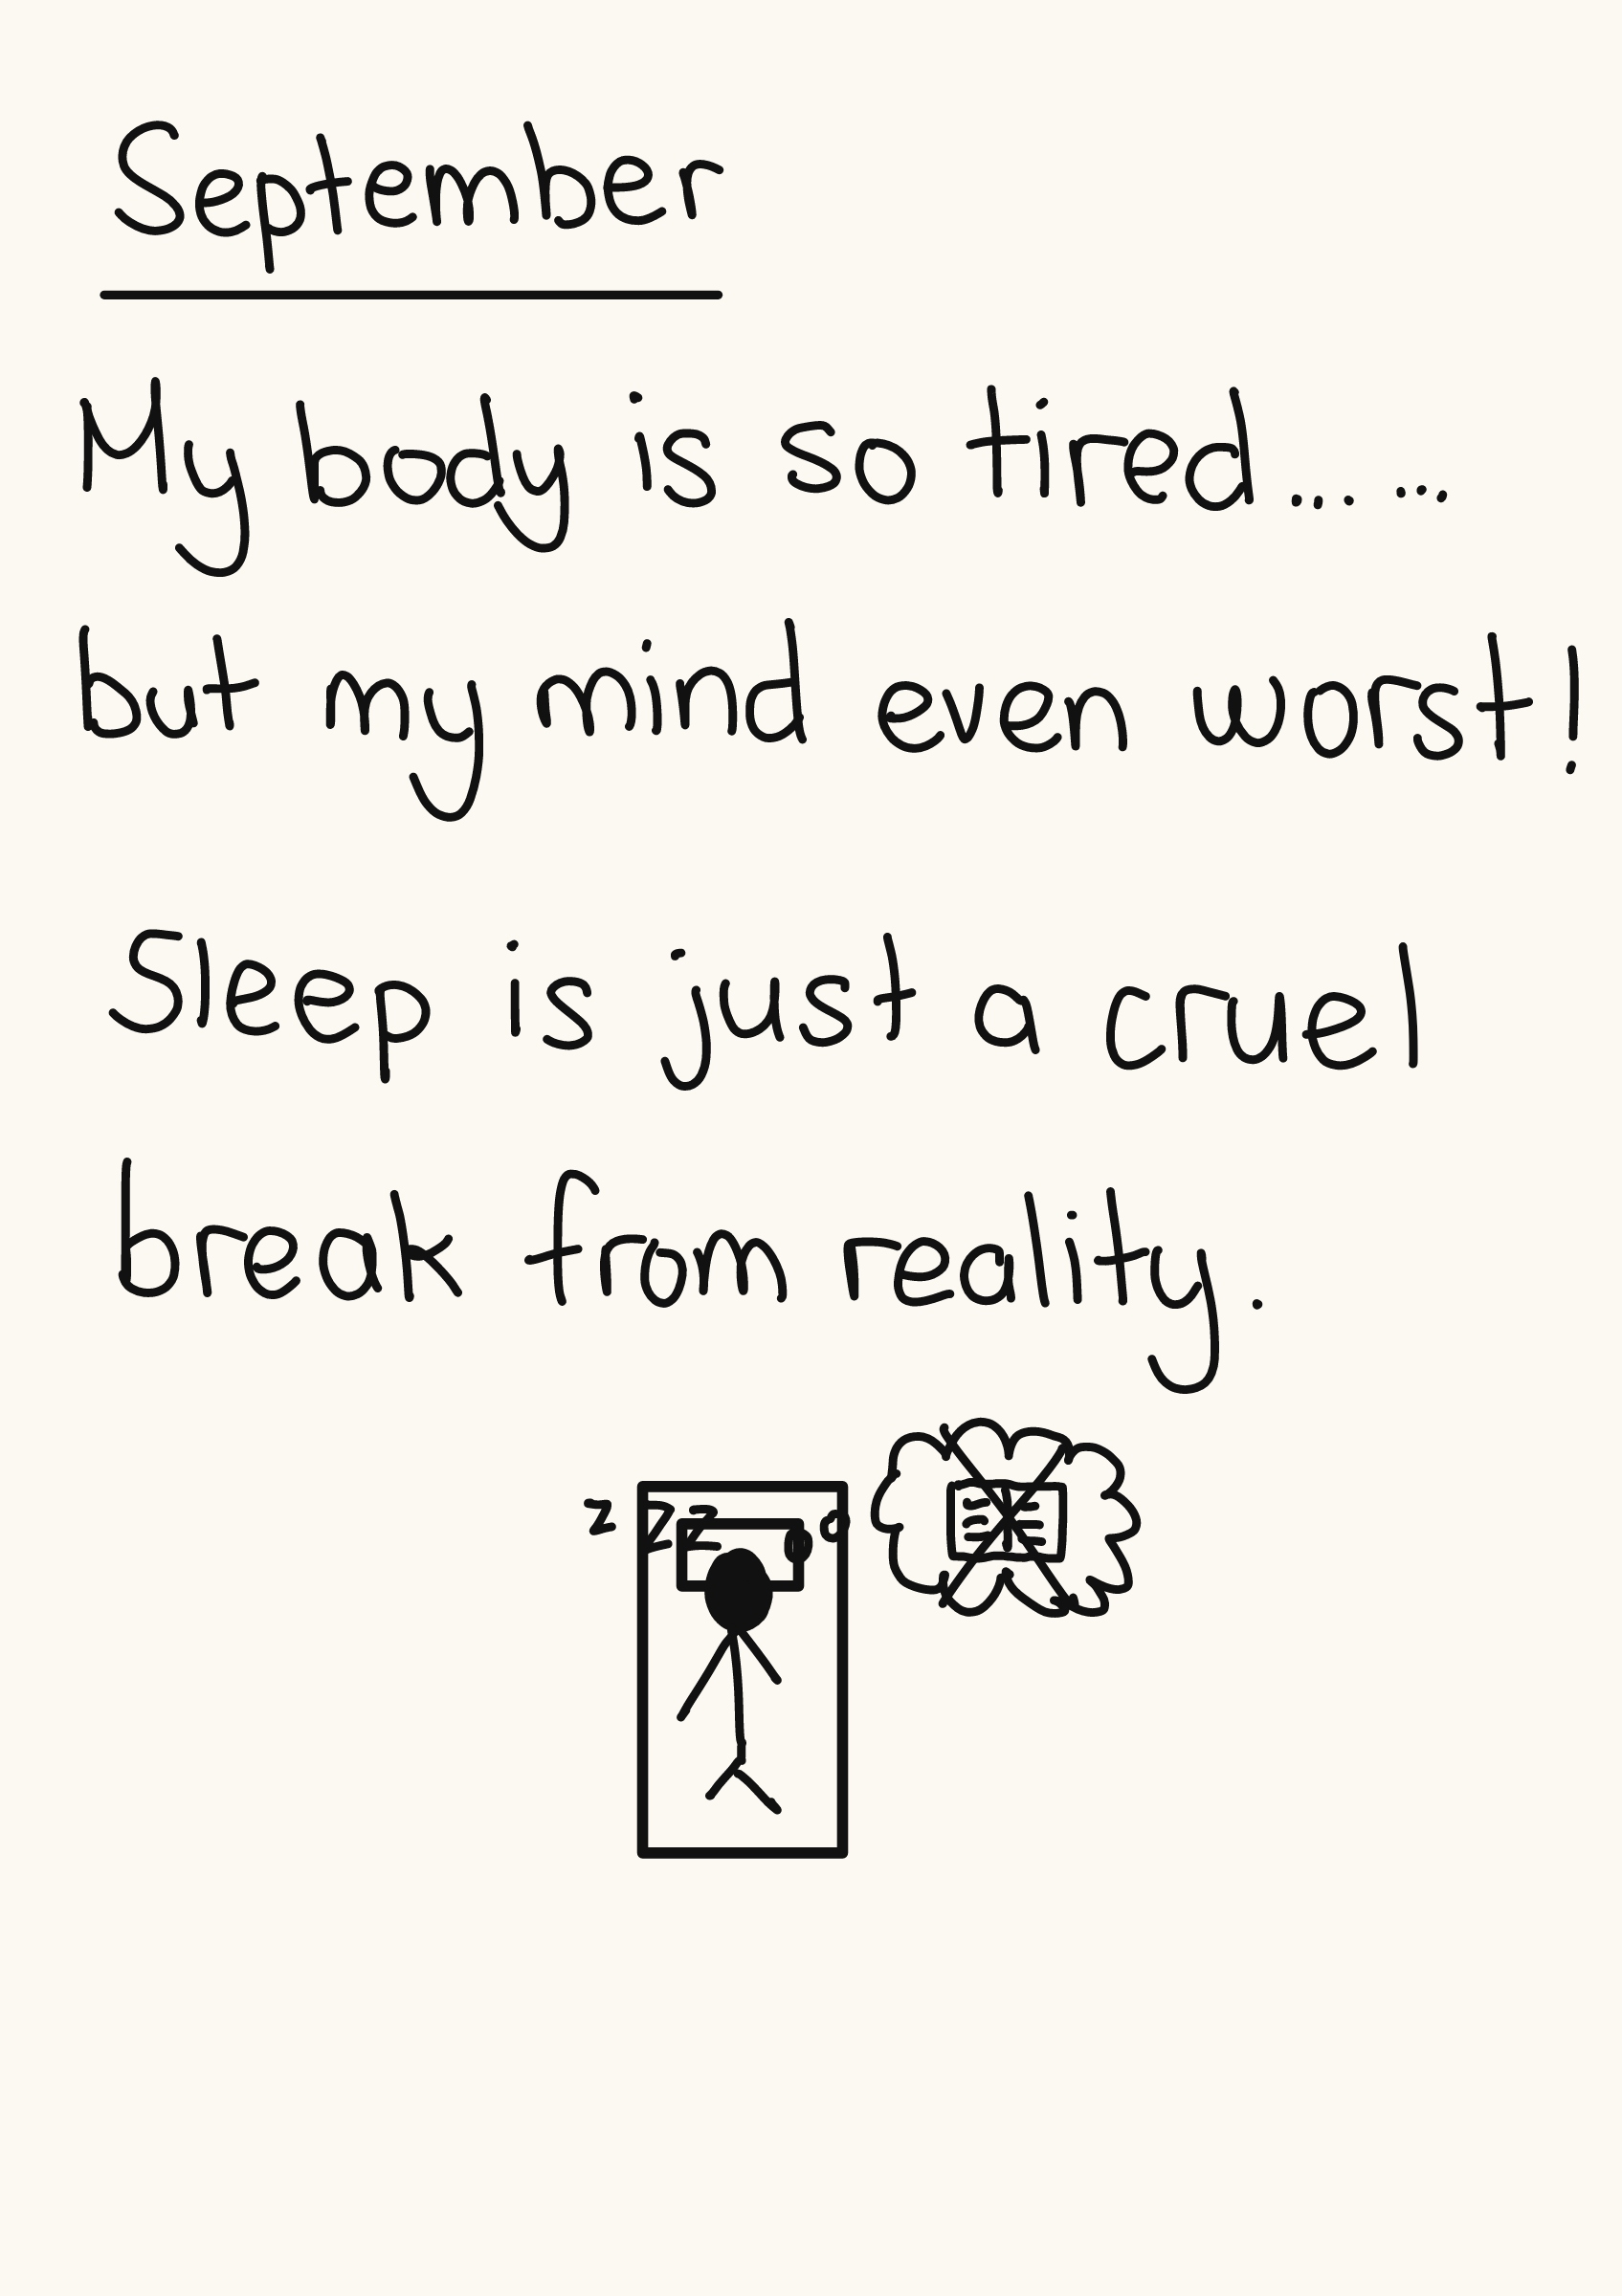 September
My body is so tired... ...
but my mind even worst!
Sleep is just a cruel
break from reality.
z z z